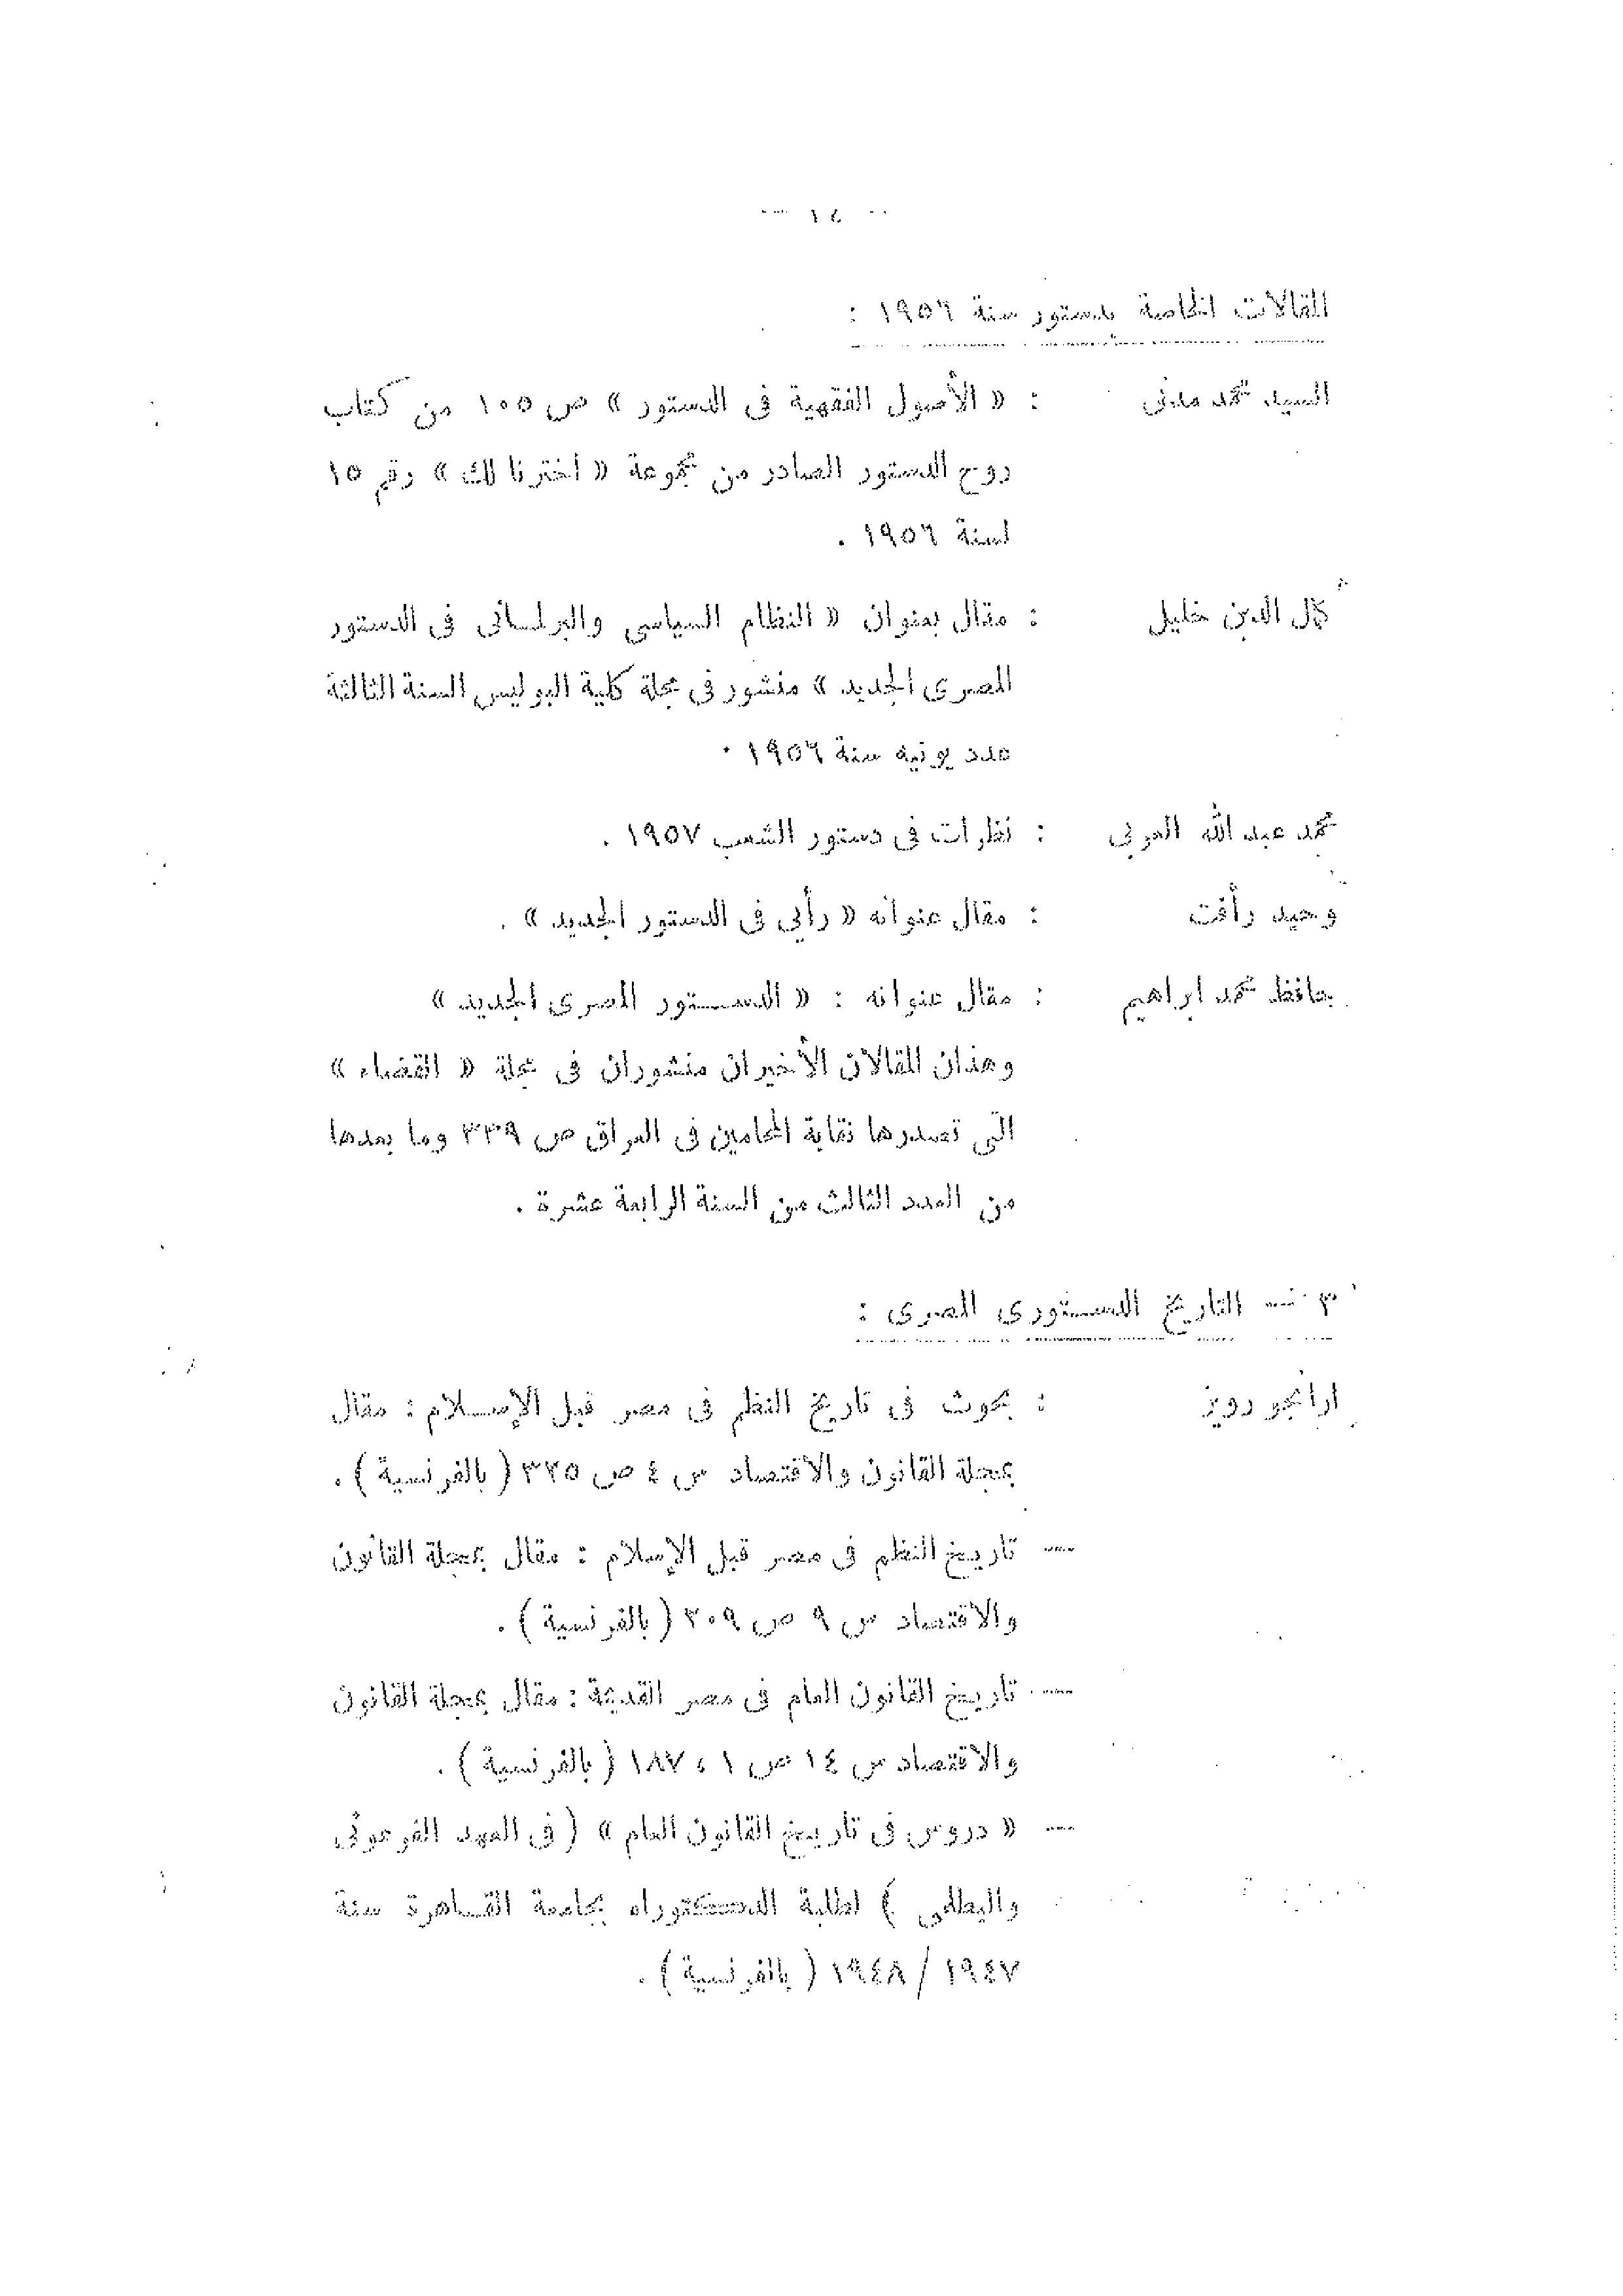 — ١٤ —
المقالات الخاصة بدستور سنة ١٩٥٦ :
السيد محمد مدنى : « الأصول الفقهية فى الدستور » ص ١٠٥ من كتاب
روح الدستور الصادر من مجموعة « اخترنا لك » رقم ١٥
لسنة ١٩٥٦ .
كمال الدين خليل : مقال بعنوان « النظام السياسى والبرلمانى فى الدستور
المصرى الجديد » منشور فى مجلة كلية البوليس السنة الثالثة
عدد يونيه سنة ١٩٥٦ .
محمد عبد الله العربى : نظرات فى دستور الشعب ١٩٥٧ .
وحيد رأفت : مقال عنوانه « رأيى فى الدستور الجديد » .
حافظ محمد ابراهيم : مقال عنوانه : « الدستور المصرى الجديد »
وهذان المقالان الأخيران منشوران فى مجلة « القضاء »
التى تصدرها نقابة المحامين فى العراق ص ٣٣٩ وما بعدها
من العدد الثالث من السنة الرابعة عشرة .
٣ — التاريخ الدستورى المصرى :
ارانجو رويز : بحوث فى تاريخ النظم فى مصر قبل الإسلام : مقال
بمجلة القانون والاقتصاد س ٤ ص ( بالفرنسية ) .
— تاريخ النظم فى مصر قبل الإسلام : مقال بمجلة القانون
والاقتصاد س ٩ ص ( بالفرنسية ) .
— تاريخ القانون العام فى مصر القديمة : مقال بمجلة القانون
والاقتصاد س ١٤ ص ١ ، ١٨٧ ( بالفرنسية ) .
— « دروس فى تاريخ القانون العام » ( فى العهد الفرعونى
والبطلمى ) لطلبة الدكتوراه بجامعة القاهرة سنة
١٩٤٧ / ١٩٤٨ ( بالفرنسية ) .